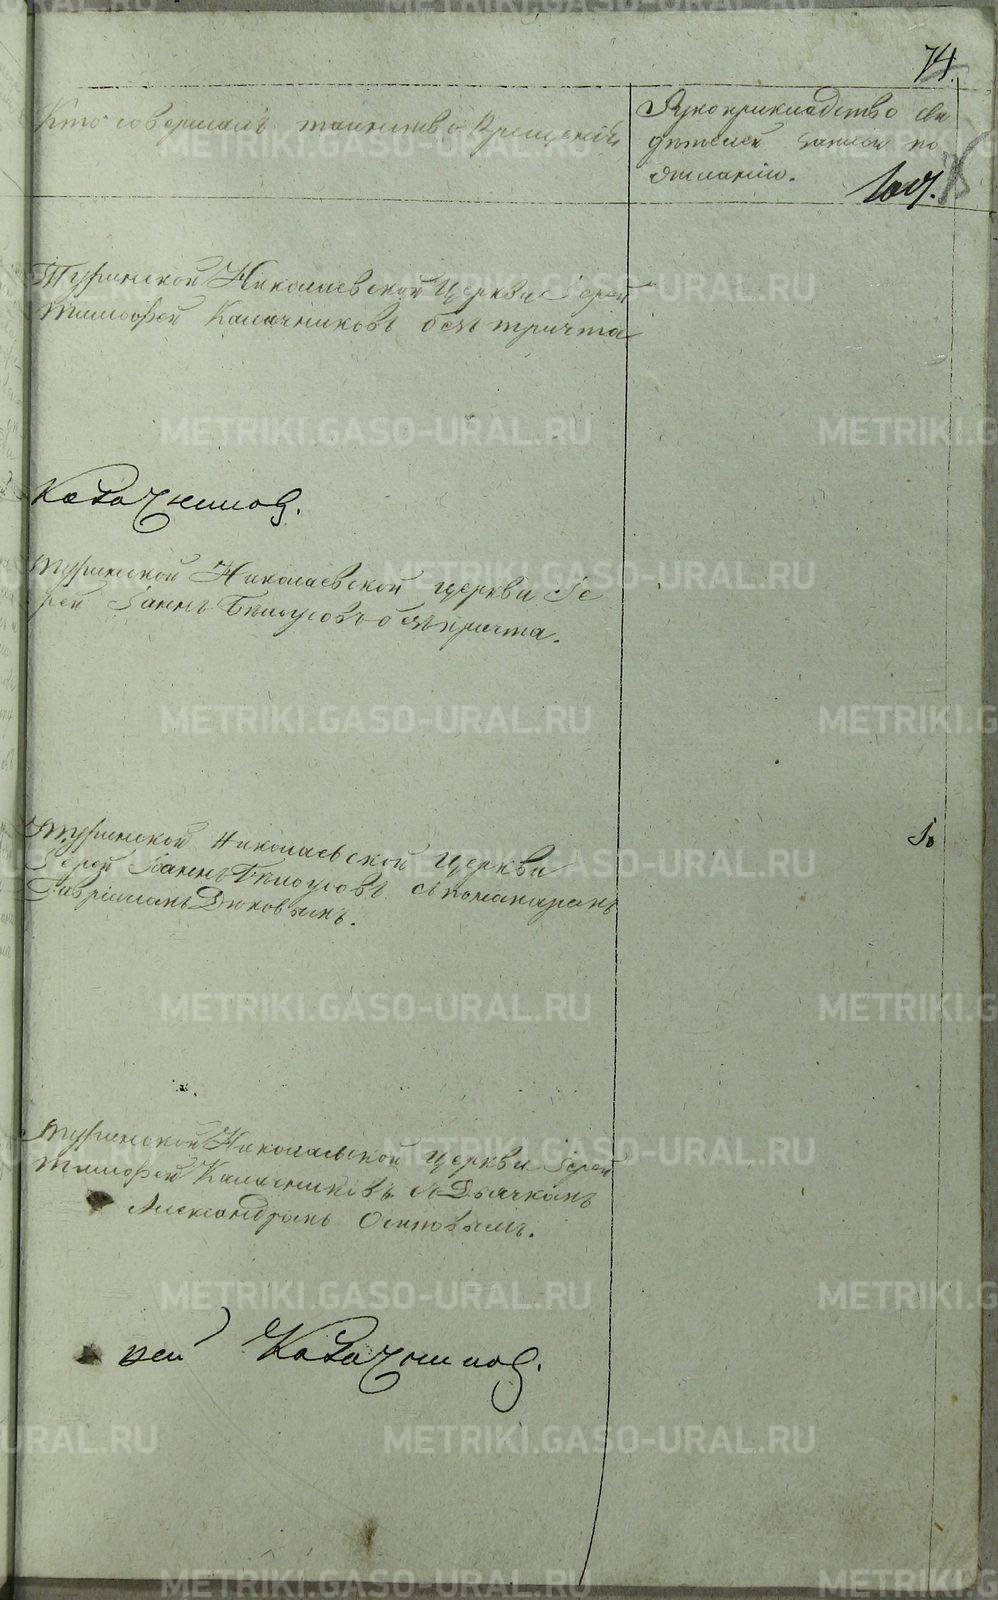 74.
Кто совершалъ таинство Крещенія
Рукоприкладство сви
детелей записи по
желанію.
Туринской Николаевской Церкви Іерей
Тимофей Калачниковъ безъ причта
Калачников.
Туринской Николаевской церкви Іе
рей Іоаннъ Белоусовъ безъ причта.
Туринской Николаевской Церкви
Іерей Іоаннъ Белоусовъ съ пономаремъ
Гавриломъ Дюковымъ.
Туринской Николаевской церкви Іерей
Тимофей Калачниковъ съ Дьячкомъ
Александромъ
рей Калачников.
METRIKI.GASO-URAL.RU